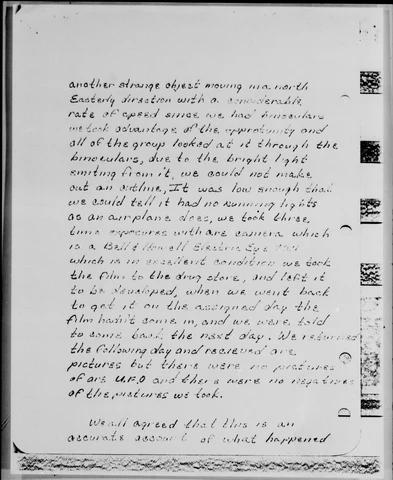 another strange object moving in a north
Easterly direction with a considerable
rate of speed since we had binoculars
we took advantage of the opportunity and
all of the group looked at it through the
binoculars, due to the bright light
emiting from it, we could not make
out an outline, It was low enough that
we could tell it had no running lights
as an airplane does, we took three
time exposures with are camera which
is a Bell & Howell Electric Eye
which is in excellent condition we took
the film to the drug store, and left it
to be developed, when we went back
to get it on the assigned day the
film hadn't come in, and we were told
to come back the next day. We returned
the following day and recieved are
pictures but there were no pictures
of are U.F.O and there were no negatives
of the pictures we took.
We all agreed that this is an
accurate account of what happened